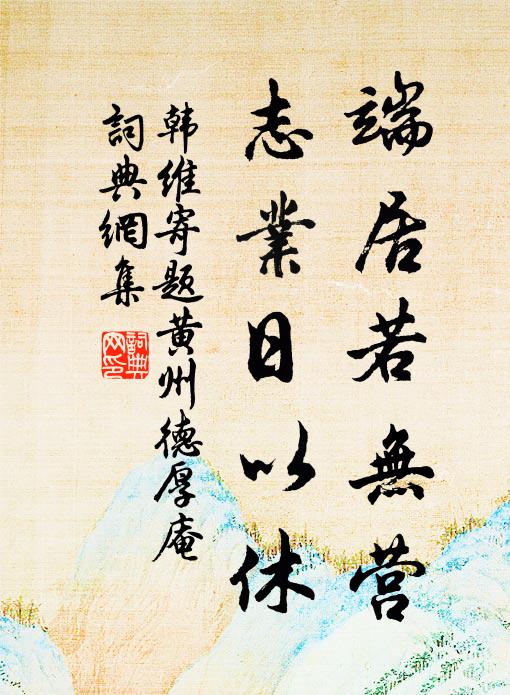 端居若無营
志業日以休
韩维寄题黄州德厚庵
詞典網集
詞典
网印